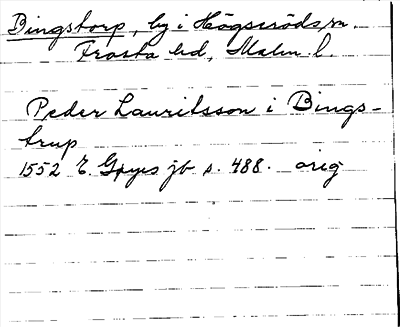 Bingstorp, by i Högseröds sn.
Frosta hd, Malm. l.
Peder Lauritsson i Bings-
trup
1552 E. Gyes jb s. 488. orig